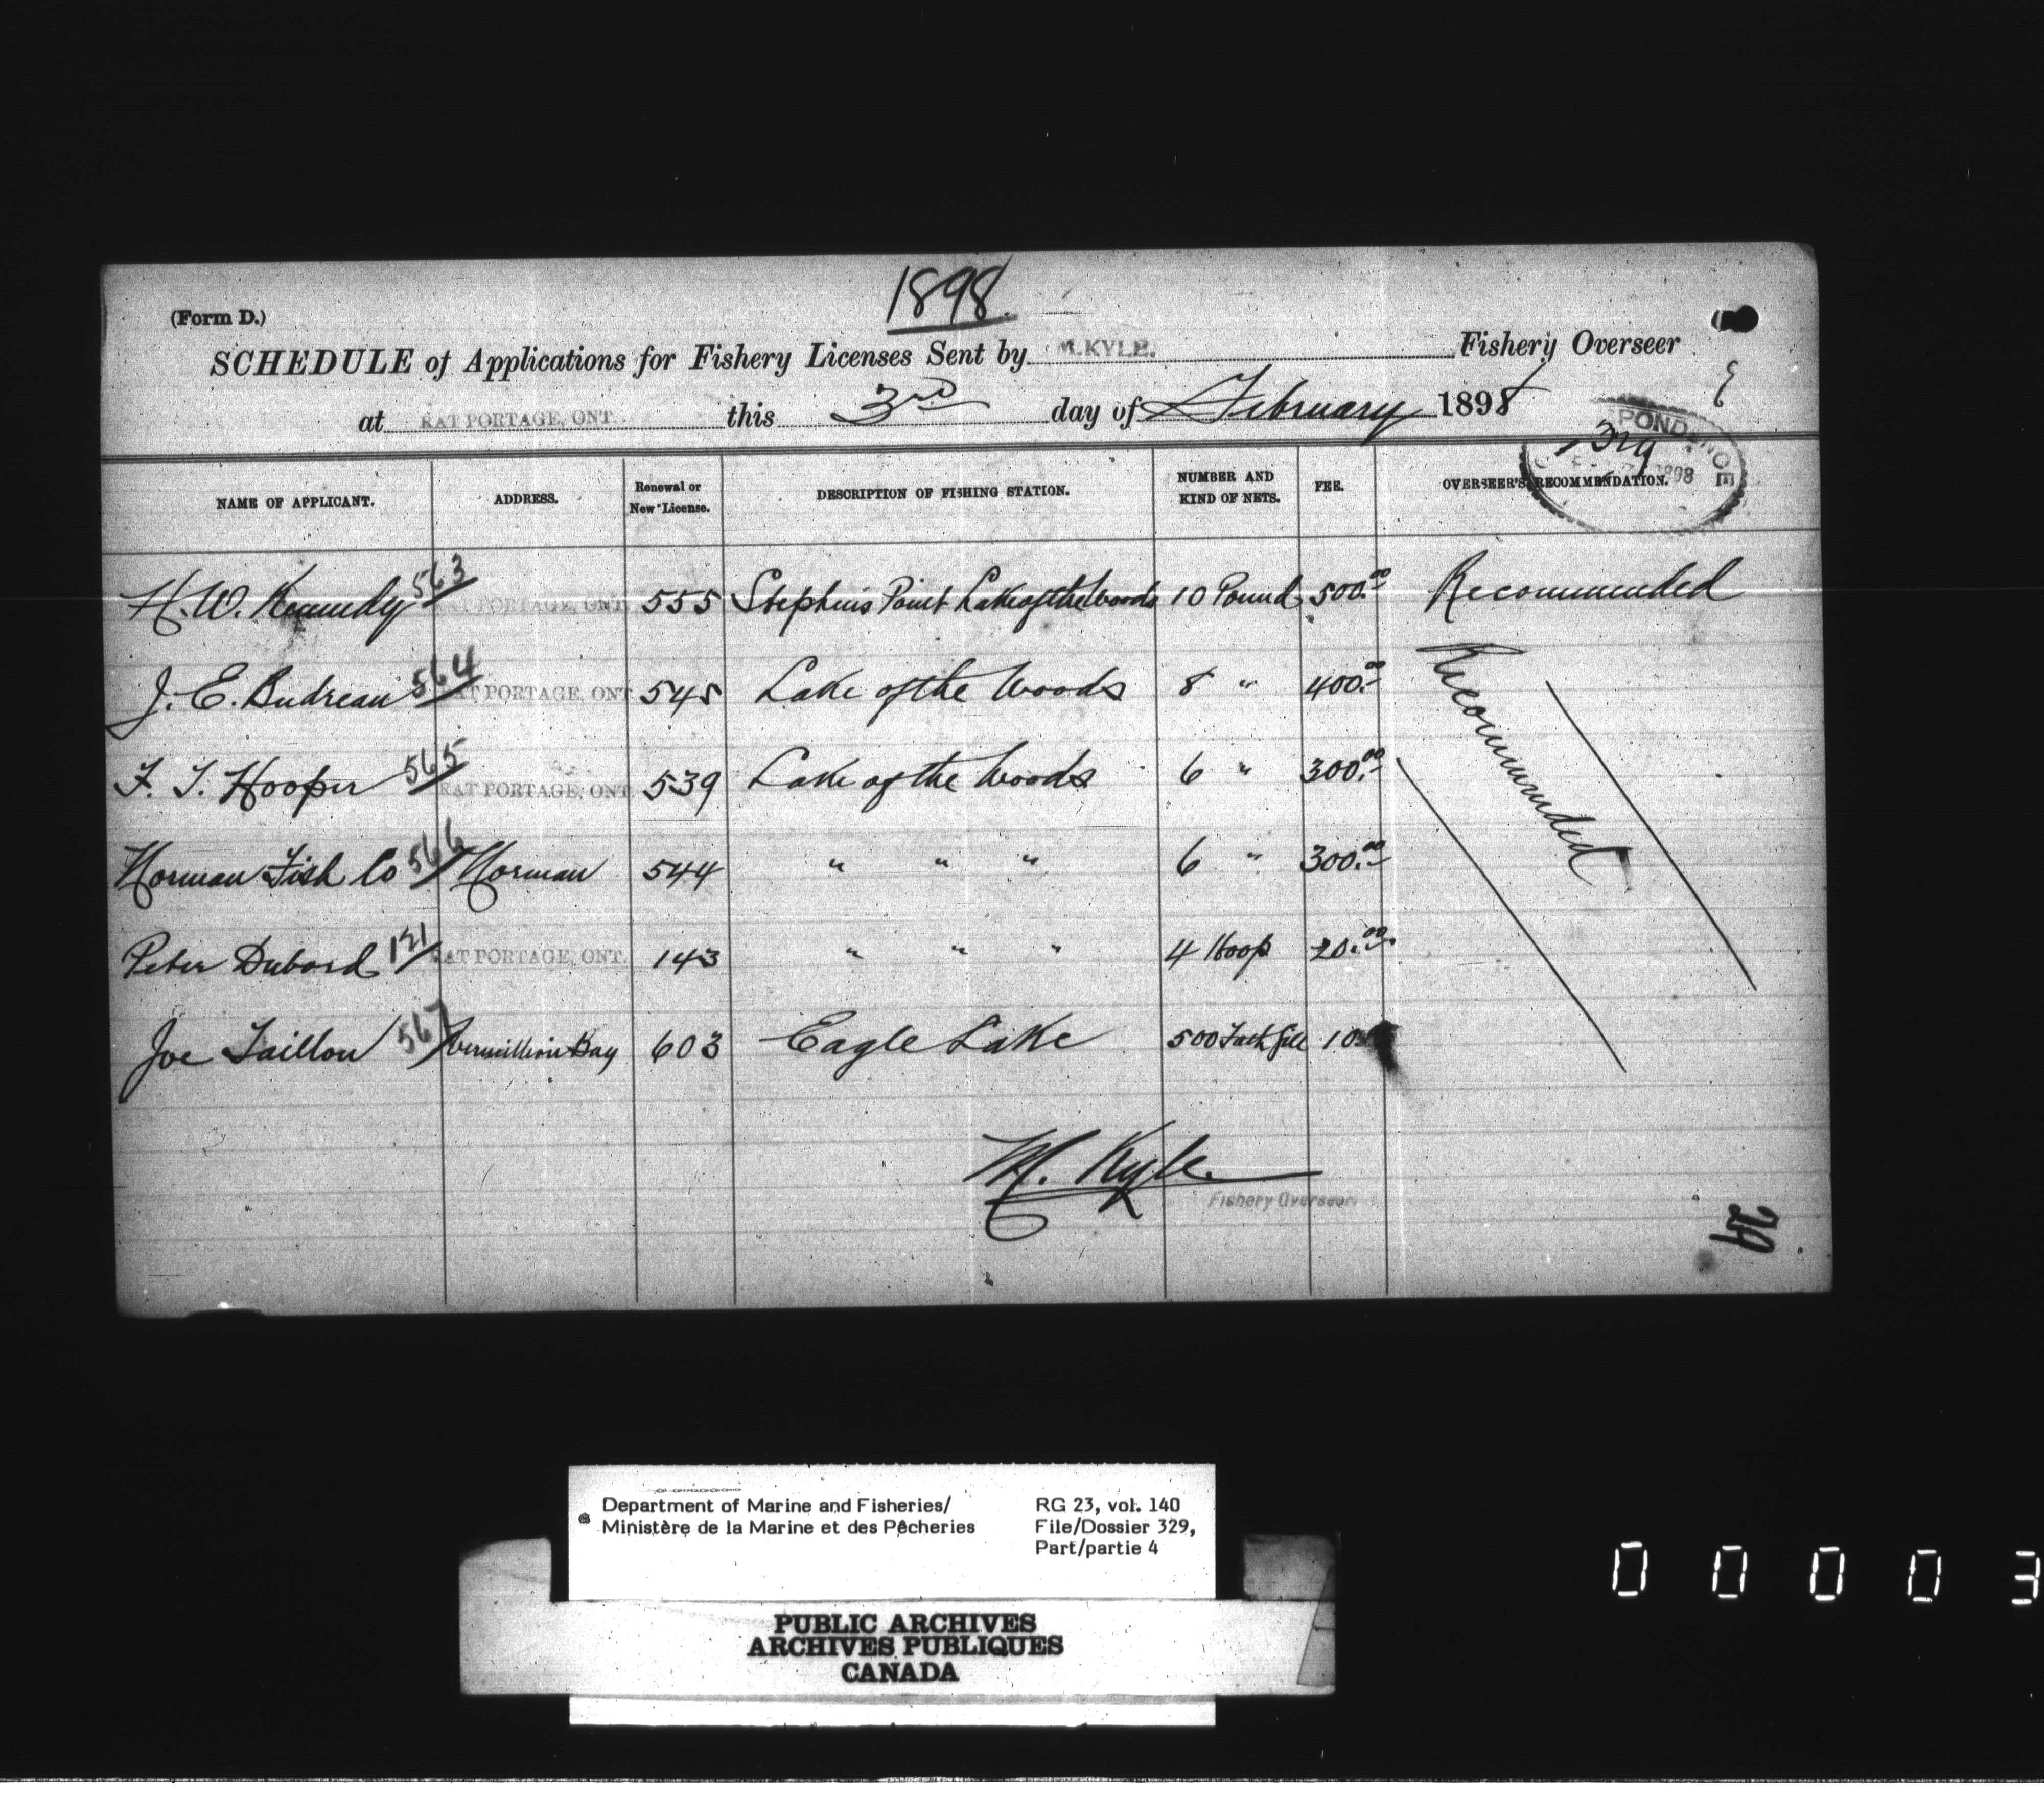 1898.
(Form D.)
SCHEDULE of Applications for Fishery Licenses Sent by M. KYLE. Fishery Overseer
at RAT PORTAGE, ONT. this 3rd day of February 1898
PONDENCE
329
1898
NAME OF APPLICANT. ADDRESS. Renewal or New License. DESCRIPTION OF FISHING STATION. NUMBER AND KIND OF NETS. FEE. OVERSEER'S RECOMMENDATION.
H. W. Kennedy 563 RAT PORTAGE, ONT. 555 Stephens Point Lake of the Woods 10 Pound 500.00 Recommended
J. E. Budreau 564 RAT PORTAGE, ONT. 545 Lake of the Woods 8 " 400.00 Recommended
F. T. Hooper 565 RAT PORTAGE, ONT. 539 Lake of the Woods 6 " 300.00
Norman Fish Co 566 Norman 544 " " " 6 " 300.00
Peter Dubord 121 RAT PORTAGE, ONT. 143 " " " 4 Hoop 20.00
Joe Taillon 567 Vermillion Bay 603 Eagle Lake 500 Fath Gill 10
M. Kyle
Fishery Overseer.
Department of Marine and Fisheries/ RG 23, vol. 140
Ministère de la Marine et des Pêcheries File/Dossier 329,
Part/partie 4
PUBLIC ARCHIVES
ARCHIVES PUBLIQUES
CANADA
0 0 0 0 3